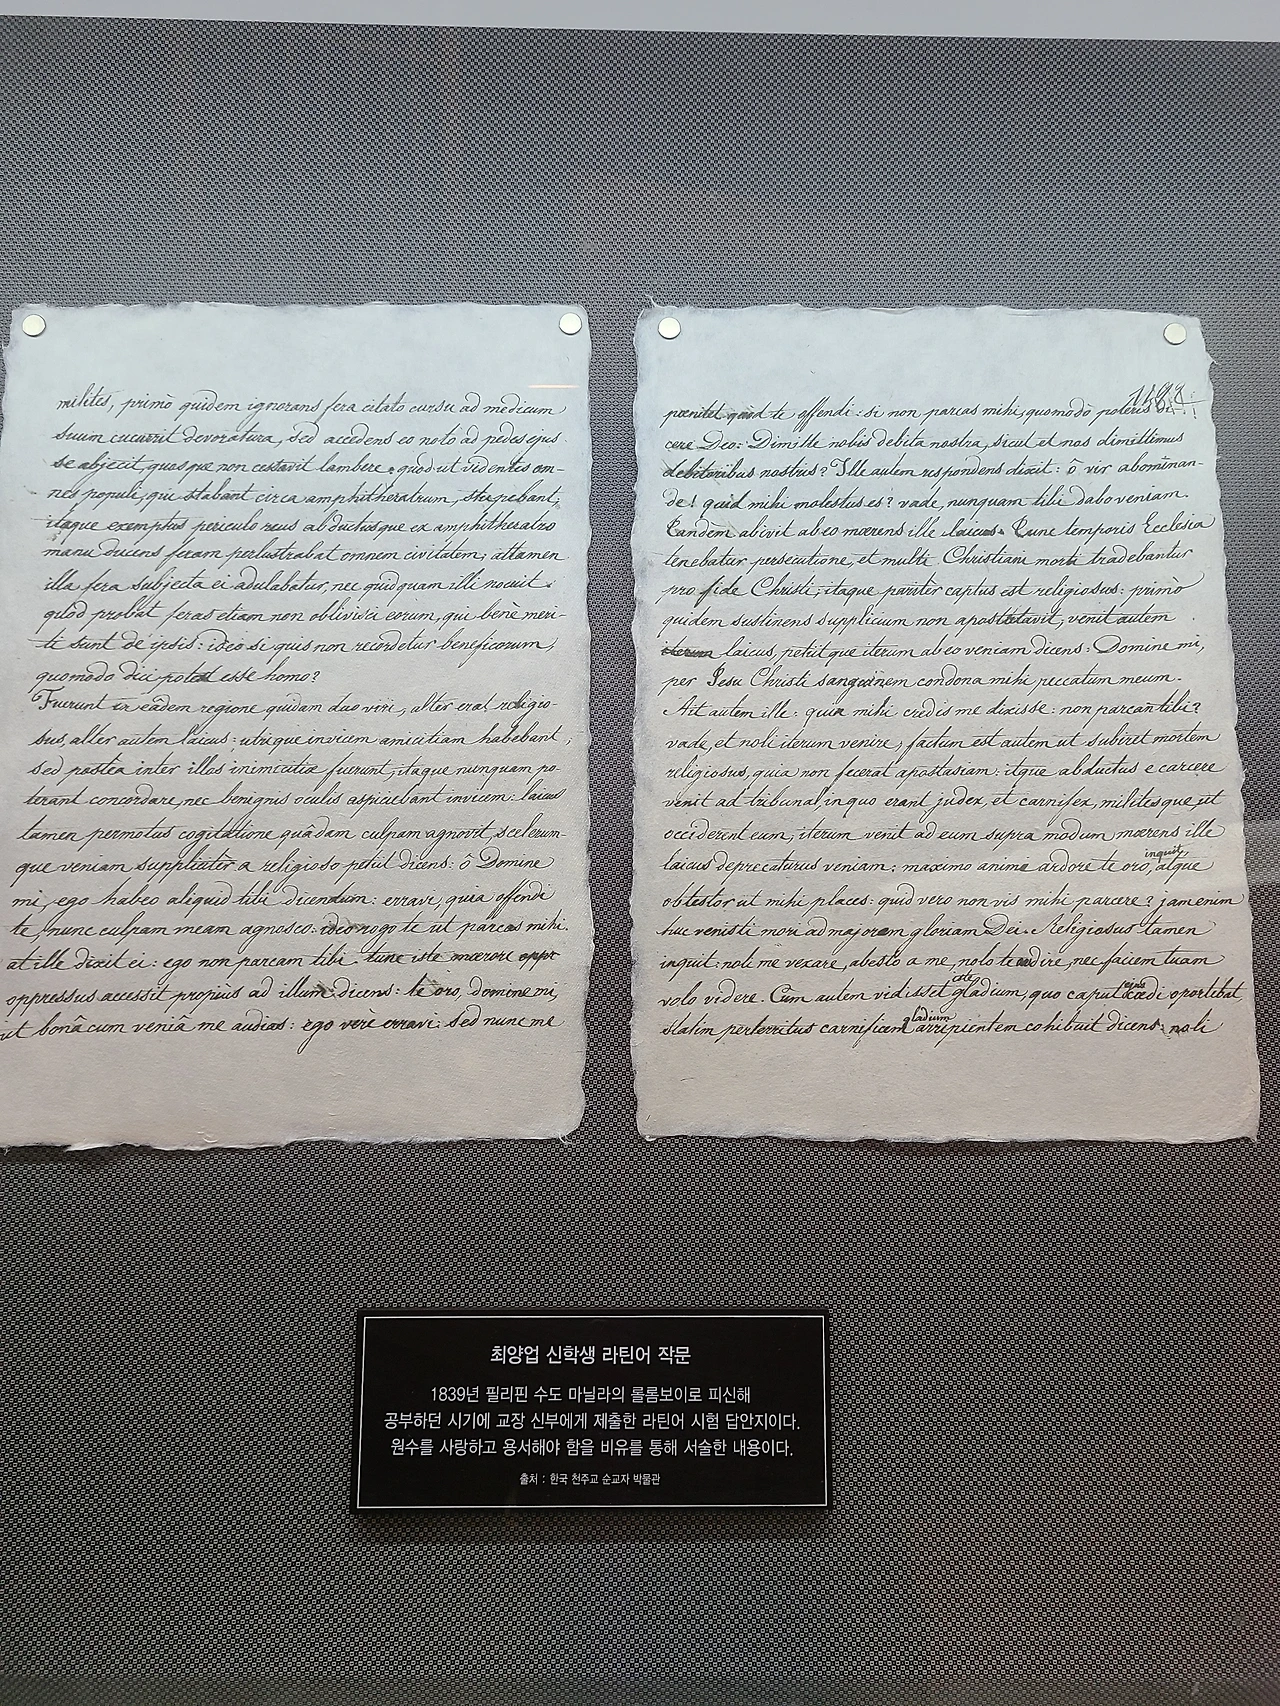 milites, primò quidem ignorans fera citato cursu ad medicum
suum cucurrit devoratura, sed accedens eo noto ad pedes ejus
se abjecit, quosque non cessavit lambere, quod ut videntes om-
nes populi, qui stabant circa amphitheatrum, stupebant,
itaque exemptus periculo reus abductusque ex amphitheatro
manu ducens feram perlustrabat omnem civitatem; attamen
illa fera subjecta ei adulabatur, nec quidquam illi nocuit:
quod probat feras etiam non oblivisci eorum, qui benè meri-
ti sunt de ipsis: ideo si quis non recordetur beneficorum,
quomodo dici potest esse homo?
Fuerunt in eadem regione quidam duo viri, alter erat religio-
sus, alter autem laicus: utrique invicem amicitiam habebant,
sed postea inter illos inimicitiæ fuerunt, itaque nunquam po-
terant concordare, nec benignis oculis aspiciebant invicem: laicus
tamen permotus cogitatione quâdam culpam agnovit, scelerum-
que veniam suppliciter a religioso petiit dicens: ô Domine
mi, ego habeo aliquid tibi dicendum: erravi, quia offendi
te, nunc culpam meam agnosco: ideo rogo te ut parcas mihi.
at ille dixit ei: ego non parcam tibi. tunc iste mœrore oppr
oppressus accessit propiùs ad illum dicens: te oro, domine mi,
ut bonâ cum veniâ me audias: ego verè erravi: sed nunc me
pœnitet quod te offendi: si non parcas mihi, quomodò poteris di-
cere Deo: Dimitte nobis debita nostra, sicut et nos dimittimus
debitoribus nostris? Ille autem respondens dixit: ô vir abominan-
de! quid mihi molestus es? vade, nunquam tibi dabo veniam.
Tandem abivit ab eo mœrens ille laicus. Tunc temporis Ecclesia
tenebatur persecutione, et multi Christiani morti tradebantur
pro fide Christi; itaque pariter captus est religiosus: primò
quidem sustinens supplicium non apostatavit, venit autem
iterum laicus, petiitque iterum ab eo veniam dicens: Domine mi,
per Jesu Christi sanguinem condona mihi peccatum meum.
Ait autem ille: quia mihi credis me dixisse: non parcam tibi?
vade, et noli iterum venire, factum est autem ut subiret mortem
religiosus, quia non fecerat apostasiam: itque abductus e carcere
venit ad tribunal, in quo erant judex, et carnifex, militesque ut
occiderent eum, iterum venit ad eum supra modum mœrens ille
laicus deprecaturus veniam: maximo animæ ardore te oro, inquit, atque
obtestor ut mihi places: quid vero non vis mihi parcere? jam enim
huc venisti mori ad majorem gloriam Dei. Religiosus tamen
inquit: noli me vexare, abesto a me, nolo te audire, nec faciem tuam
volo videre. Cum autem vidisset iste gladium, quo caput ejus cædi oportebat
statim perterritus carnificem gladium arripientem cohibuit dicens: noli
최양업 신학생 라틴어 작문
1839년 필리핀 수도 마닐라의 롤롬보이로 피신해
공부하던 시기에 교장 신부에게 제출한 라틴어 시험 답안지이다.
원수를 사랑하고 용서해야 함을 비유를 통해 서술한 내용이다.
출처 : 한국 천주교 순교자 박물관